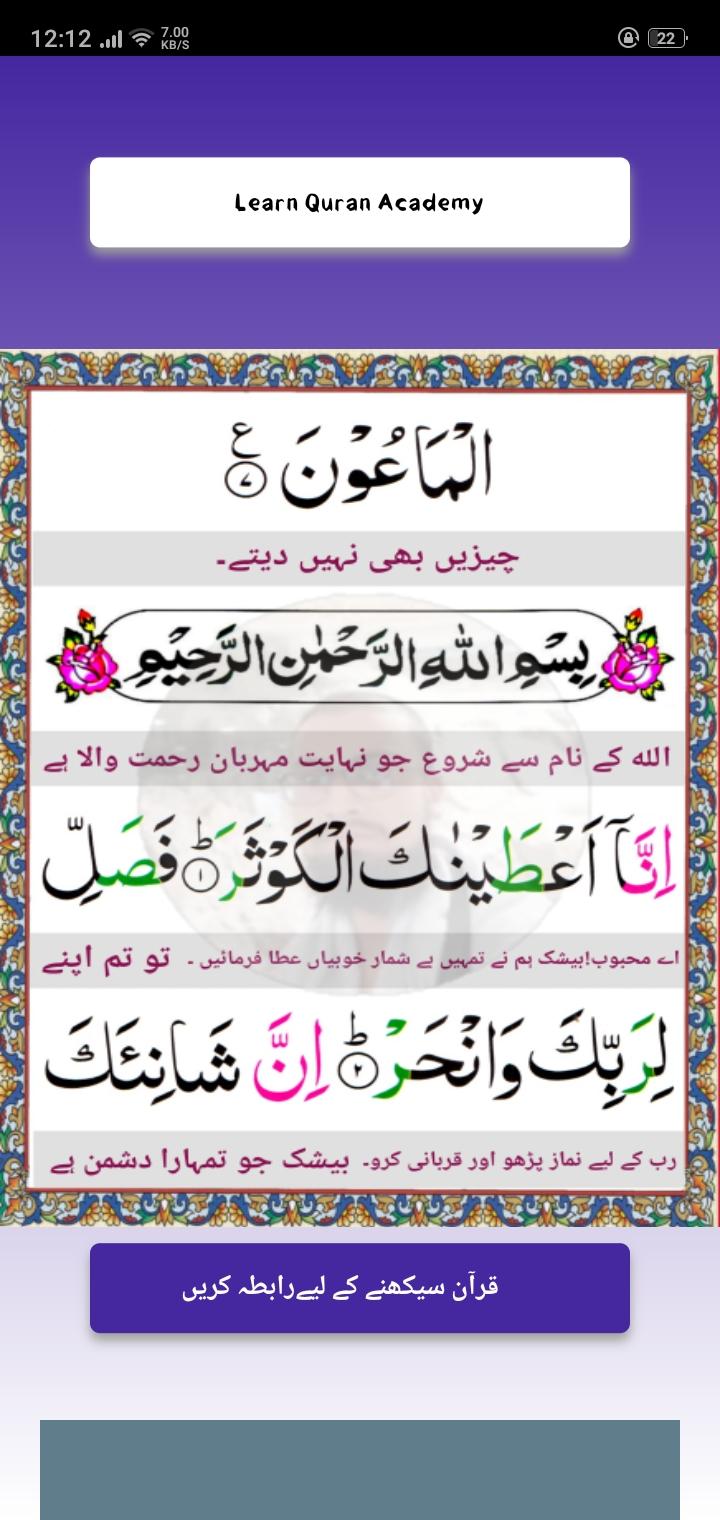 12:12 7.00 KB/S 22
Learn Quran Academy
الْمَاعُوْنَ ﴿۷﴾ ع
چیزیں بھی نہیں دیتے۔
بِسْمِ اللّٰهِ الرَّحْمٰنِ الرَّحِيْمِ
اللہ کے نام سے شروع جو نہایت مہربان رحمت والا ہے
اِنَّاۤ اَعْطَيْنٰكَ الْكَوْثَرَ ؕ﴿۱﴾ فَصَلِّ
اے محبوب!بیشک ہم نے تمہیں بے شمار خوبیاں عطا فرمائیں ۔ تو تم اپنے
لِرَبِّكَ وَانْحَرْ ؕ﴿۲﴾ اِنَّ شَانِئَكَ
رب کے لیے نماز پڑھو اور قربانی کرو۔ بیشک جو تمہارا دشمن ہے
قرآن سیکھنے کے لیےرابطہ کریں